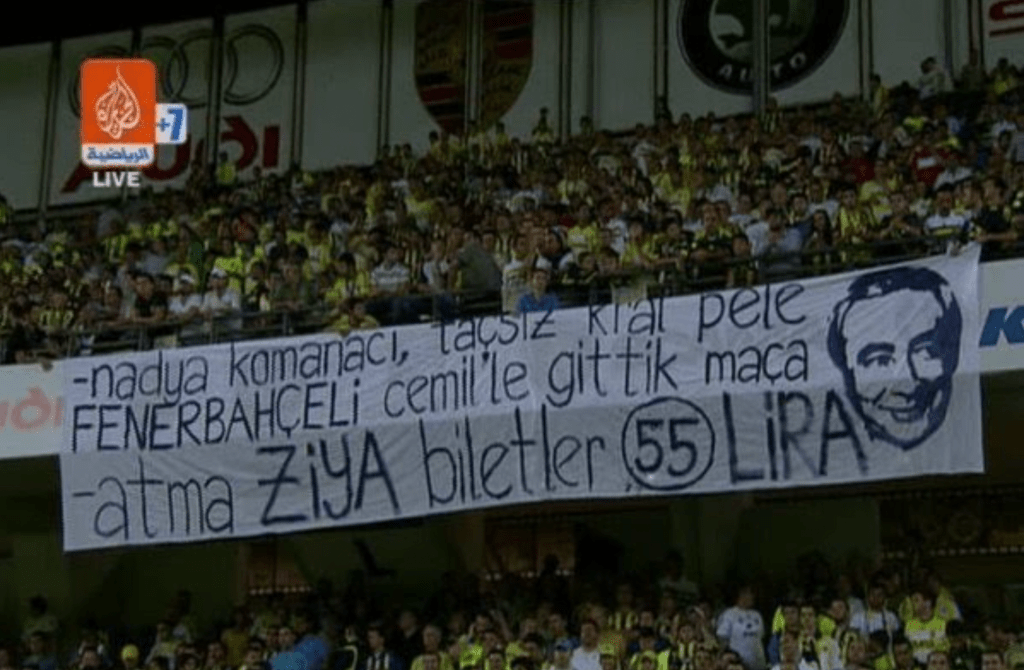 الرياضية
+7
LIVE
AUDI
AUTO
-nadya komanacı, taçsız kral pele
FENERBAHÇELİ cemil'le gittik maça
-atma ZİYA biletler 55 LİRA